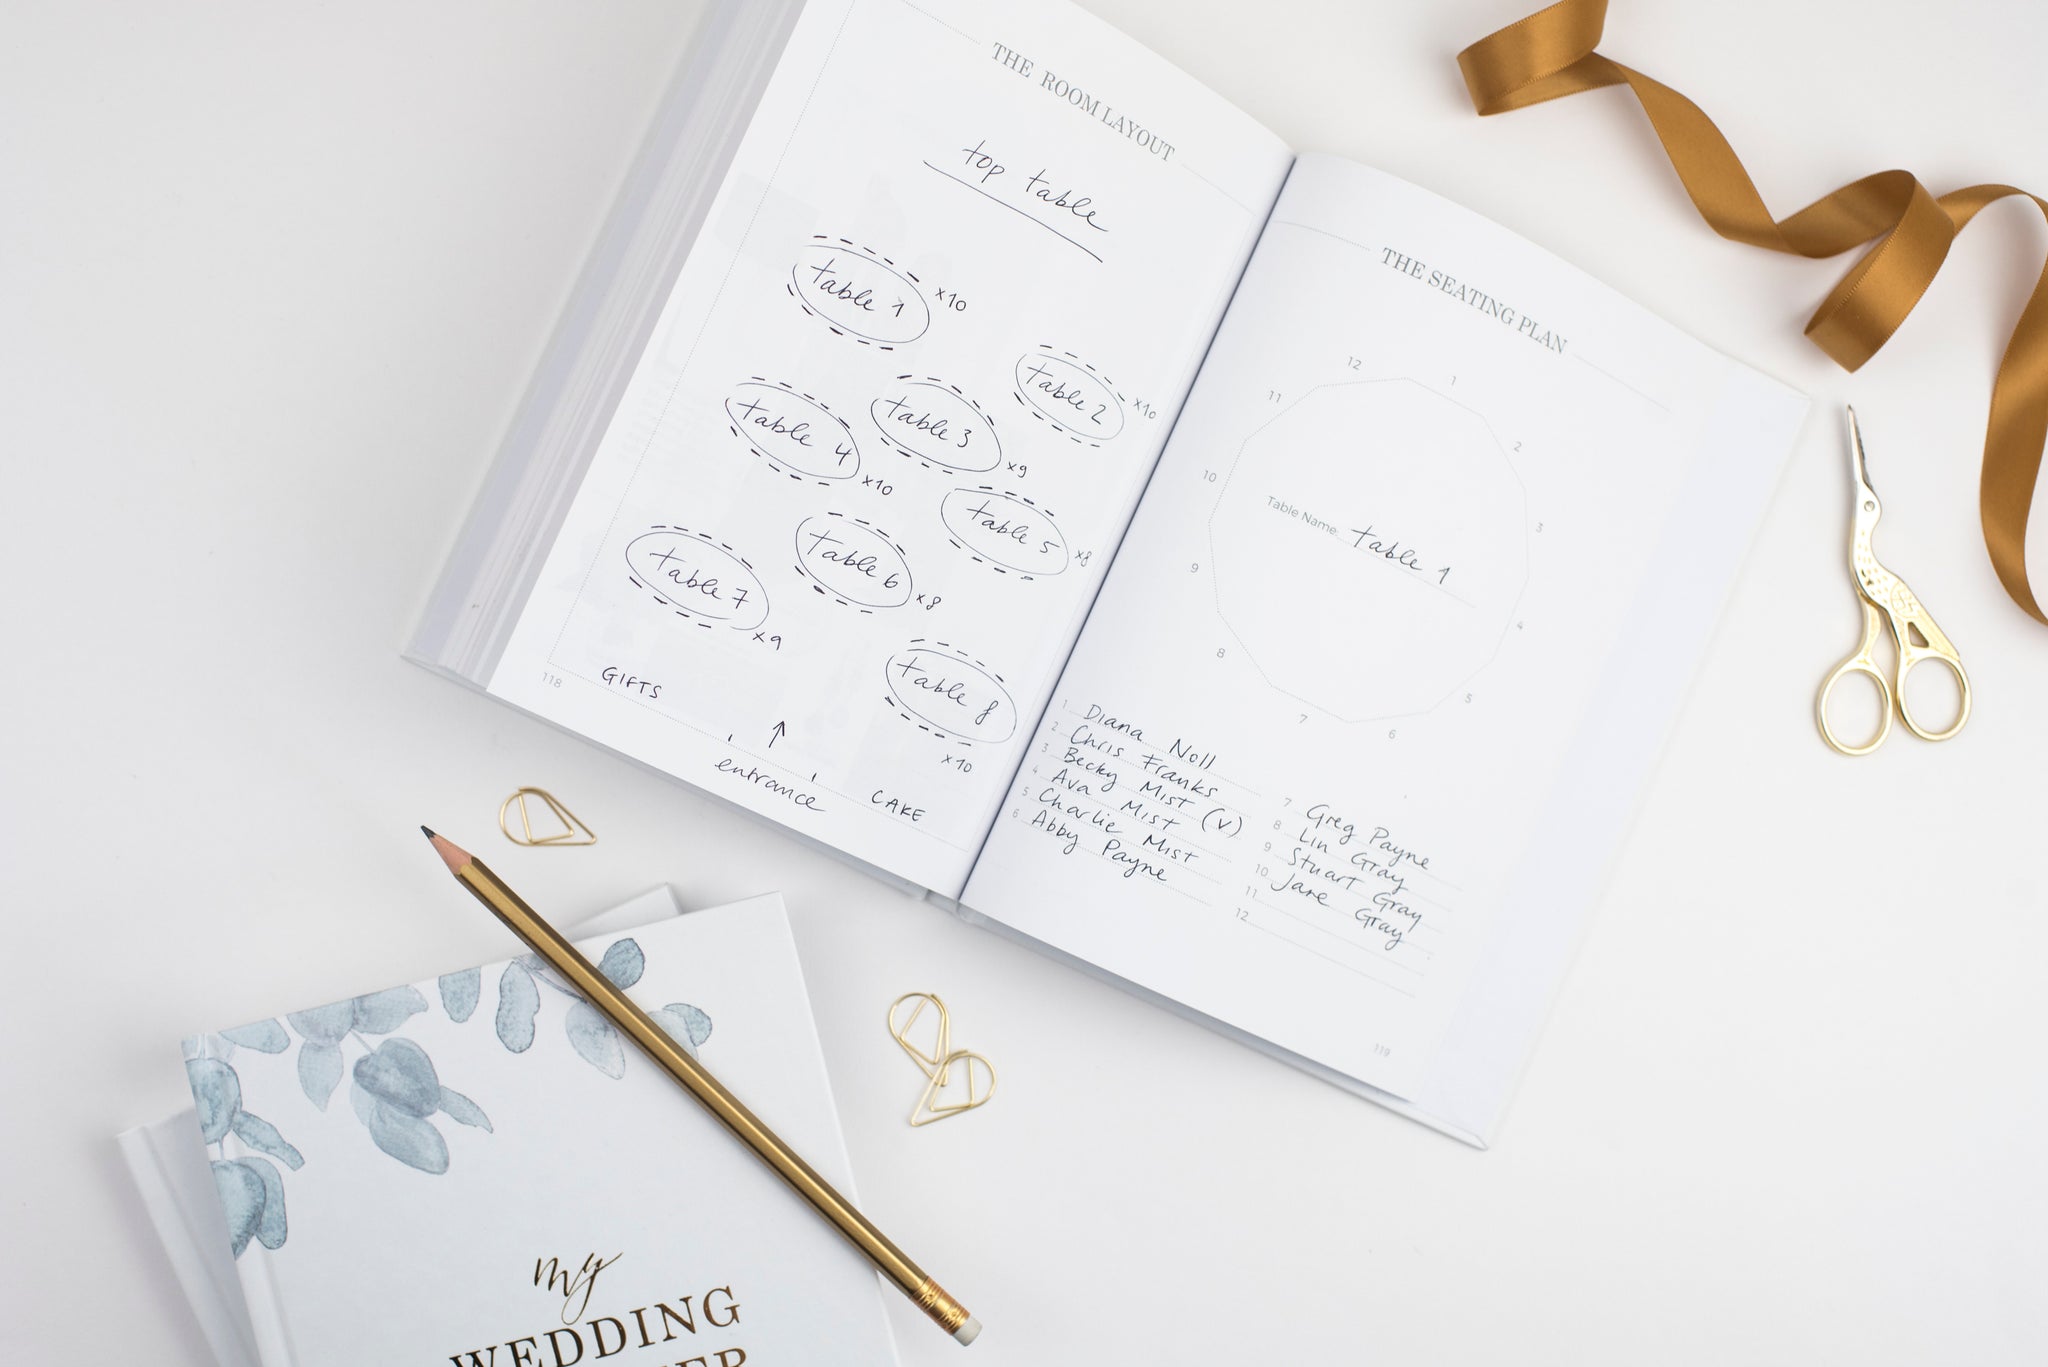 THE ROOM LAYOUT
top table
table 1
x10
table 2
x10
table 3
x9
table 4
x10
table 5
x8
table 6
x8
table 7
x9
table 8
x10
GIFTS
entrance
CAKE
118
THE SEATING PLAN
12
1
11
2
10
3
9
4
8
5
7
6
Table Name: table 1
1 Diana Noll
2 Chris Franks
3 Becky Mist
4 Ava Mist (v)
5 Charlie Mist
6 Abby Payne
7 Greg Payne
8 Lin Gray
9 Stuart Gray
10 Jane Gray
11
12
119
my
WEDDING